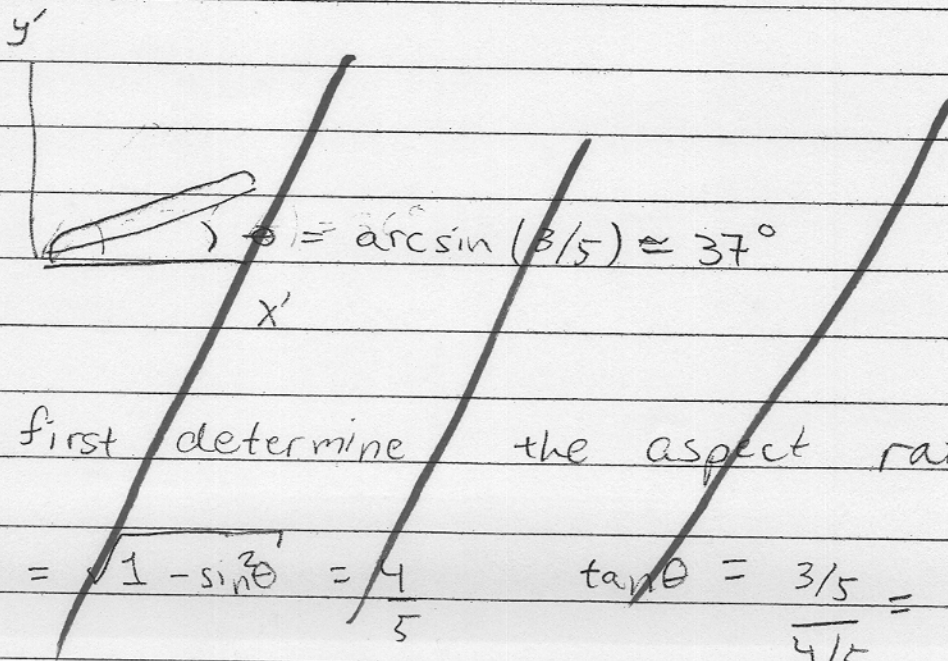 y′
θ = arcsin (3/5) ≃ 37°
x′
first determine the aspect
= √(1 - sin²θ) = 4/5 tanθ = (3/5)/(4/5) =